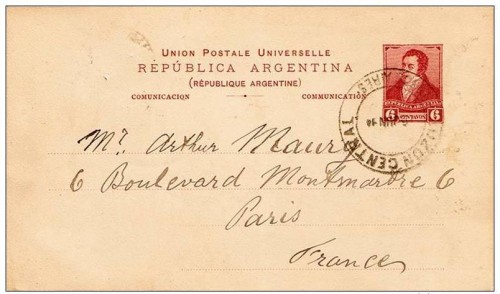 UNION POSTALE UNIVERSELLE
REPÚBLICA ARGENTINA
(RÉPUBLIQUE ARGENTINE)
COMUNICACION COMMUNICATION
REPUBLICA ARGENTINA
6 CENTAVOS 6
BUZON CENTRAL
Mr. Arthur Maury
6 Boulevard Montmartre 6
Paris
France